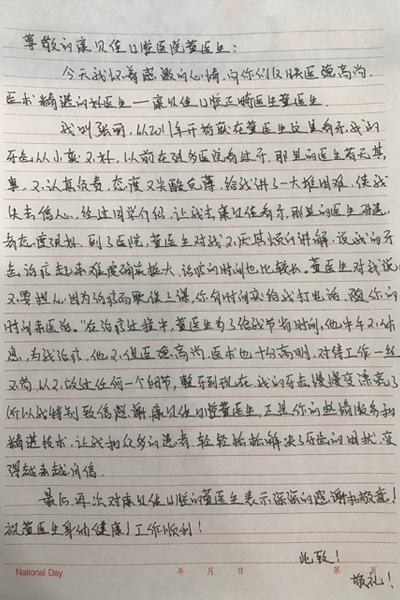 尊敬的康贝佳口腔医院黄医生：
今天我怀着感激的心情，向你们以及医德高尚、
医术精湛的好医生——康贝佳口腔正畸医生黄医生.
我叫张丽，从2011年开始就在黄医生这里看牙，我的
牙齿从小就不好，以前在别的医院看过牙，那里的医生若无其
事，又不认真负责，态度又尖酸刻薄，给我讲了一大堆困难，使我
失去信心，经过同学介绍，让我去康贝佳看牙，那里的医生
态度很好，到了医院，黄医生对我不厌其烦的讲解，说我的牙
齿治疗起来难度确实挺大，治疗的时间也比较长。黄医生对我说，
不要担心，因为治疗而耽误上课，你有时间就给我打电话，随你的
时间来医治。"在治疗过程中，黄医生为了给我节省时间，他中午不休
息，为我治疗，他不但医德高尚，医术也十分高明，对待工作一丝
不苟，从不放过任何一个细节，整牙到现在，我的牙齿慢慢变漂亮了
所以我特别致信感谢康贝佳口腔黄医生，正是你的热情服务和
精湛技术，让我和众多的患者，轻轻松松解决了牙齿的困扰，变
得越来越自信。
最后，再次对康贝佳口腔的黄医生表示深深的感谢和敬意！
祝黄医生身体健康！工作顺利！
此致！
敬礼！
National Day 年 月 日 第 页